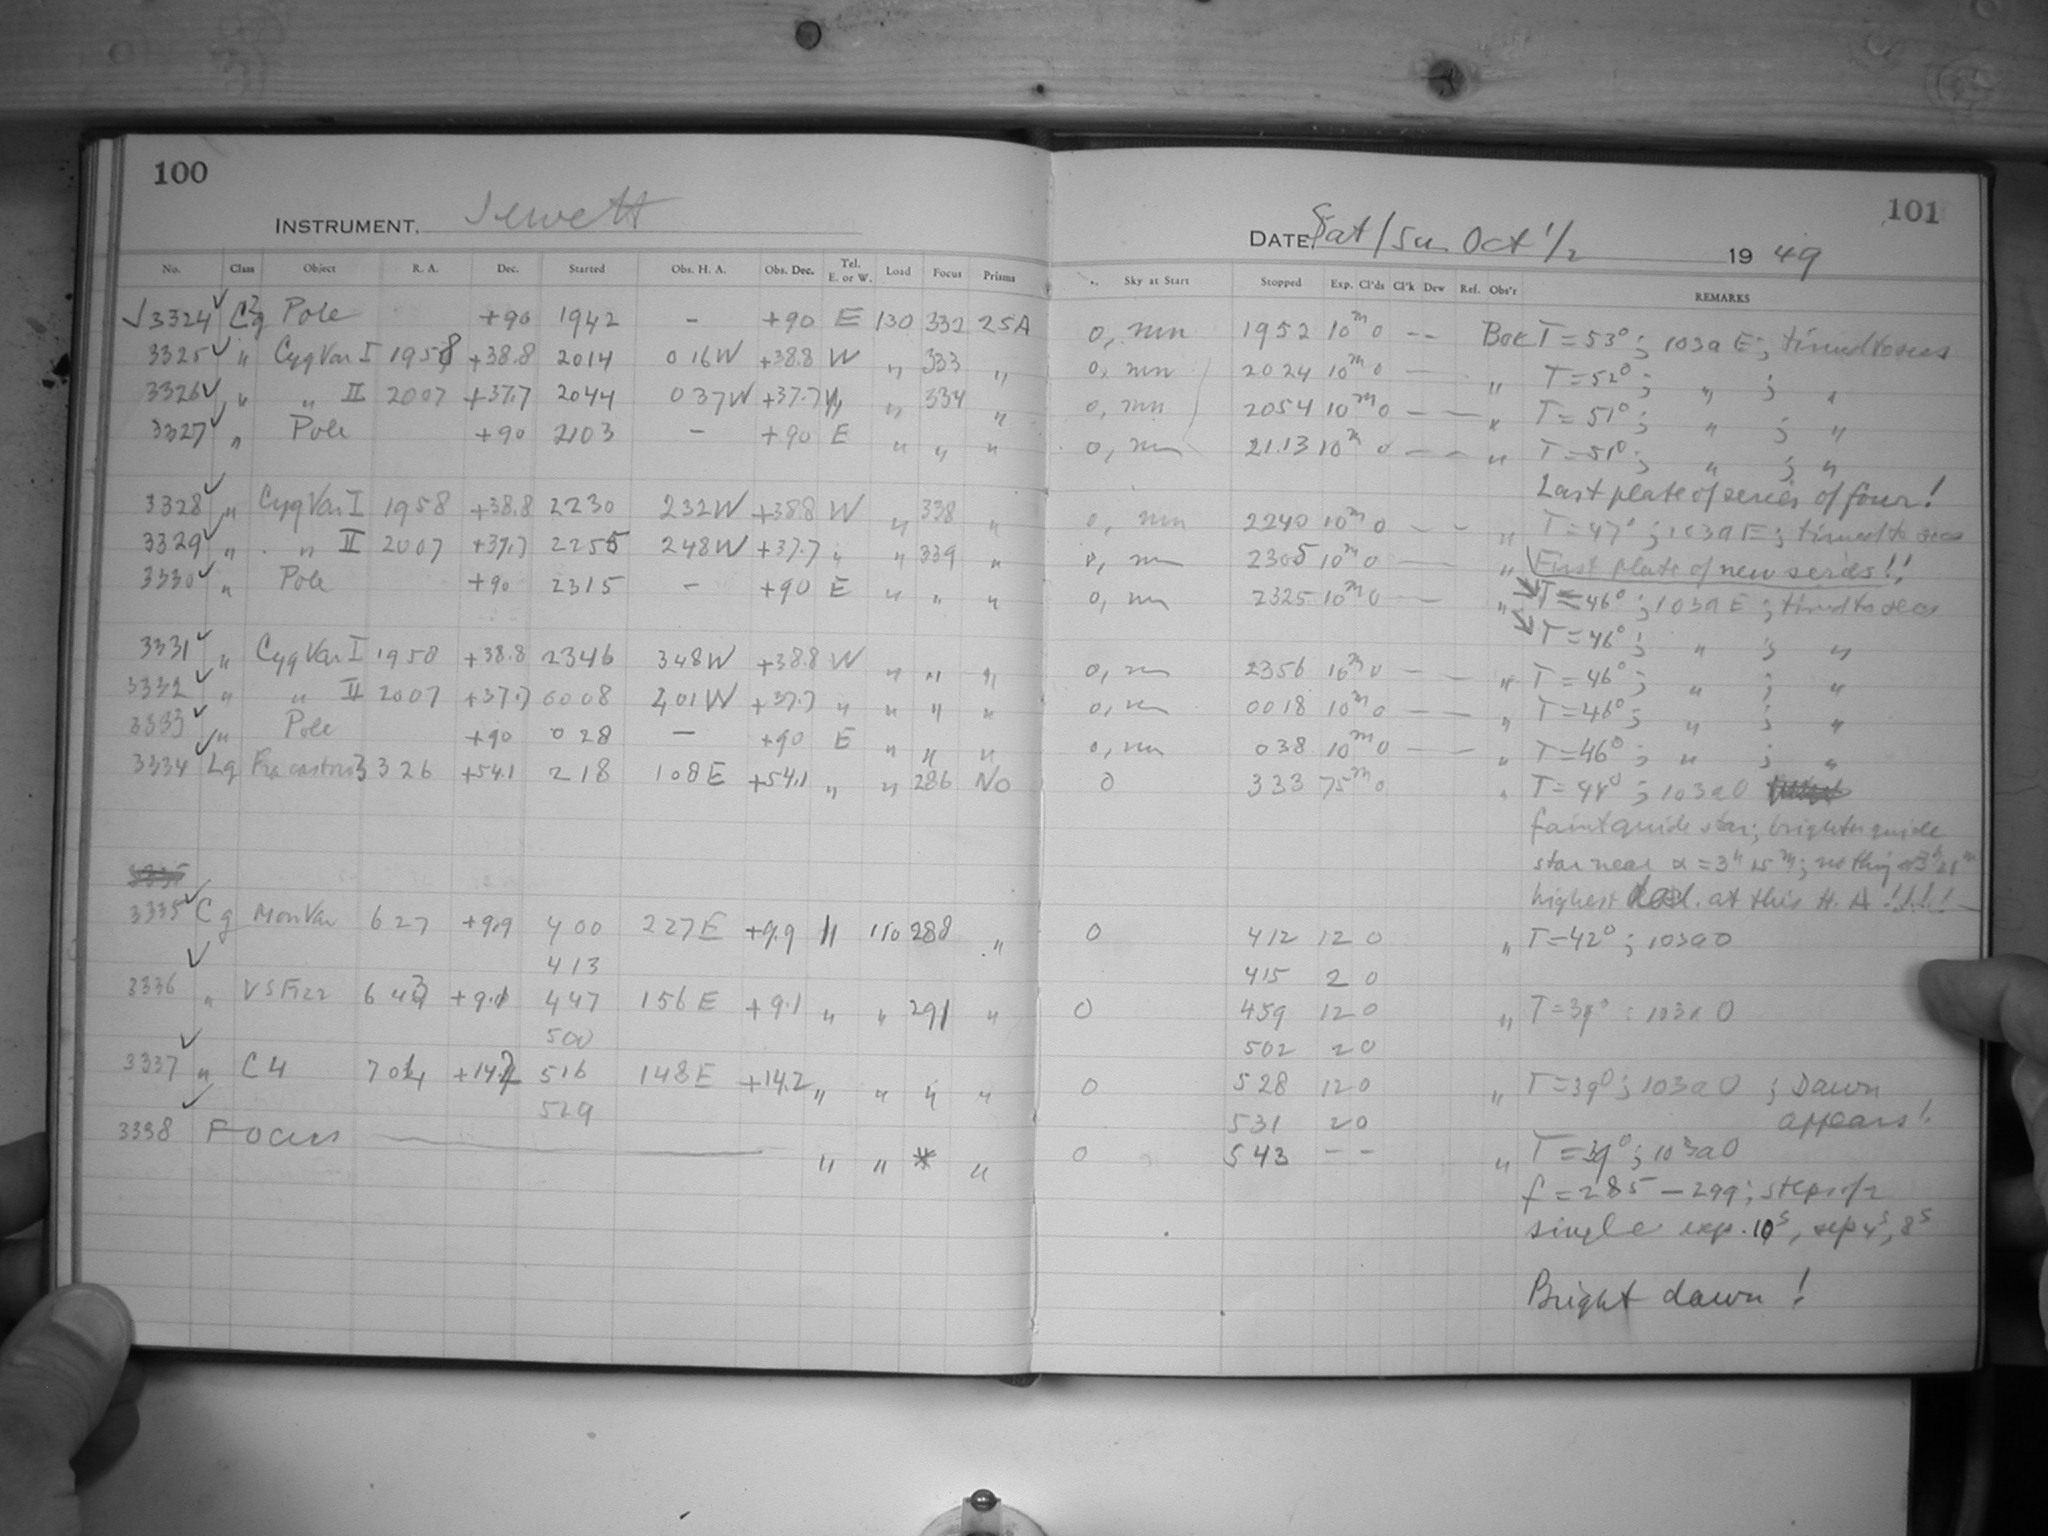 100
INSTRUMENT. Jewett
No. Class Object R. A. Dec. Started Obs. H. A. Obs. Dec. Tel. E. or W. Load Focus Prisms
3324 Cg Pole +90 1942 - +90 E 130 332 25A
3325 " Cyg Var I 1958 +38.8 2014 0 16W +38.8 W " 333 "
3326 " " II 2007 +37.7 2044 0 37W +37.7 " " 334 "
3327 " Pole +90 2103 - +90 E " " "
3328 " Cyg Var I 1958 +38.8 2230 232W +38.8 W " 338 "
3329 " " II 2007 +37.7 2255 248W +37.7 " " 339 "
3330 " Pole +90 2315 - +90 E " " "
3331 " Cyg Var I 1958 +38.8 2346 348W +38.8 W " " "
3332 " " II 2007 +37.7 0008 401W +37.7 " " " "
3333 " Pole +90 028 - +90 E " " "
3334 Lg 326 +54.1 218 108E +54.1 " " 286 No
3335 Cg Mon Var 627 +9.9 400 227E +9.9 " 110 288 "
413
3336 " 643 +9.1 447 156E +9.1 " " 291 "
500
3337 " C4 704 +14.2 516 148E +14.2 " " " "
529
3338 Focus " " * "
101
DATE Sat/Sun Oct 1/2 1949
Sky at Start Stopped Exp. Cl'ds Cl'k Dew Ref. Obs'r REMARKS
0, mn 1952 10m 0 - - Bok T = 53°; 103a E; timed to secs
0, mn 2024 10m 0 - " T = 52°; " ; "
0, mn 2054 10m 0 - - " T = 51°; " ; "
0, mn 2113 10m 0 - - " T = 51°; " ; "
Last plate of series of four!
0, mn 2240 10m 0 - - " T = 47°; 103a E; timed to secs
0, mn 2305 10m 0 - " First plate of new series!!
0, mn 2325 10m 0 - " T = 46°; 103a E; timed to secs
T = 46°; " ; "
0, mn 2356 10m 0 - - " T = 46°; " ; "
0, mn 0018 10m 0 - - " T = 46°; " ; "
0, mn 038 10m 0 - - " T = 46°; " ; "
0 333 75m 0 " T = 44°; 103a O
faint guide star; brighter guide
star near α = 3h 15m; nothing
highest at this H. A!!!!
0 412 12 0 " T = 42°; 103a O
415 2 0
0 459 12 0 " T = 39°; 103a O
502 2 0
0 528 12 0 " T = 39°; 103a O; Dawn
531 2 0 appears!
0 543 - - " T = 39°; 103a O
f = 285 - 299; steps of 2
single exp. 10s, sep 4s, 8s
Bright dawn!